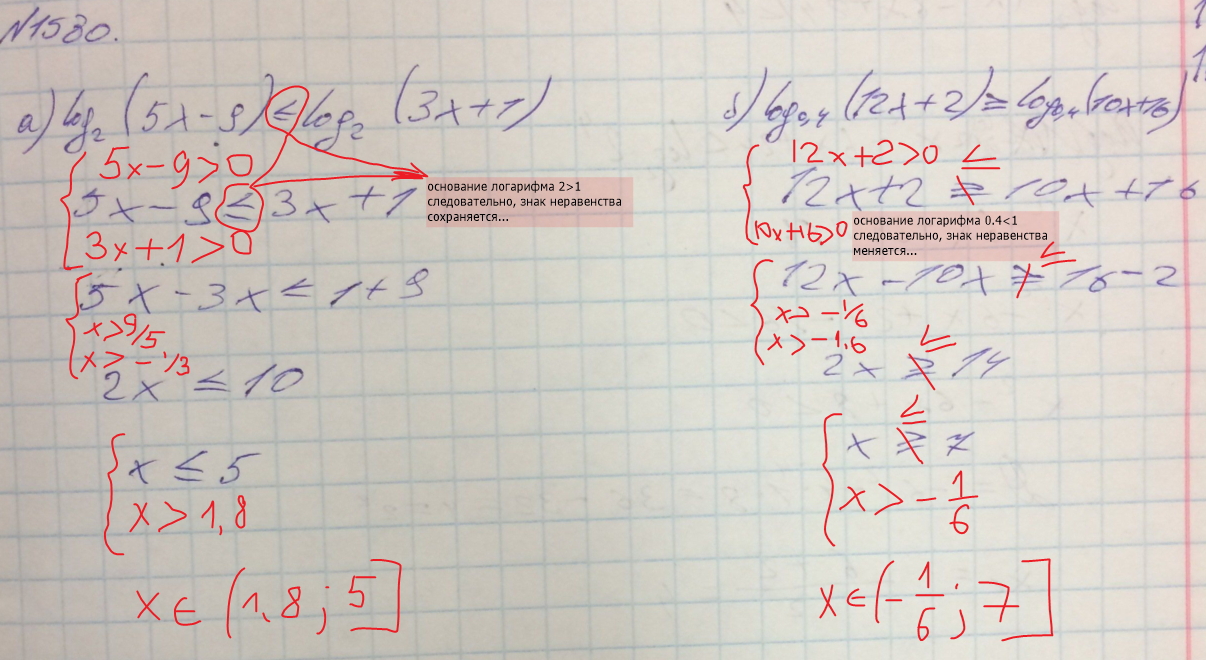 №1580.
а) log₂ (5x-9) ≤ log₂ (3x+1)
5x-9>0
5x-9 ≤ 3x+1
3x+1>0
основание логарифма 2>1
следовательно, знак неравенства
сохраняется...
5x-3x ≤ 1+9
x>9/5
x>-1/3
2x ≤ 10
x ≤ 5
x>1,8
x∈(1,8; 5]
б) log₀,₄ (12x+2) ≥ log₀,₄ (10x+16)
12x+2>0 ≤
12x+2 ≥ 10x+16
10x+16>0
основание логарифма 0.4<1
следовательно, знак неравенства
меняется...
≤
12x-10x ≥ 16-2
x>-1/6
x>-1,6
≤
2x ≥ 14
≤
x ≥ 7
x>-1/6
x∈(-1/6; 7]